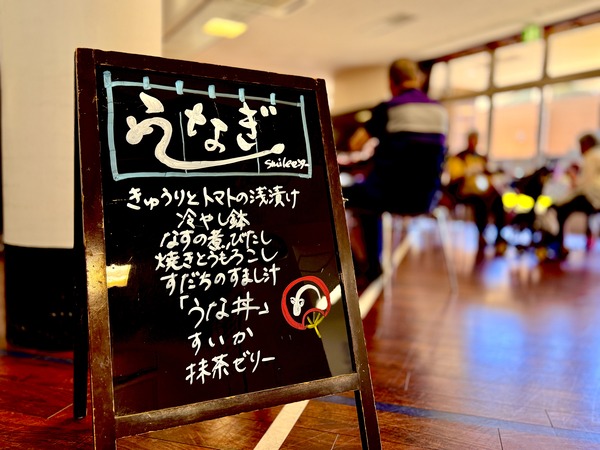 うなぎ
きゅうりとトマトの浅漬け
冷やし鉢
なすの煮びたし
焼きとうもろこし
すだちのすまし汁
「うな丼」
すいか
抹茶ゼリー